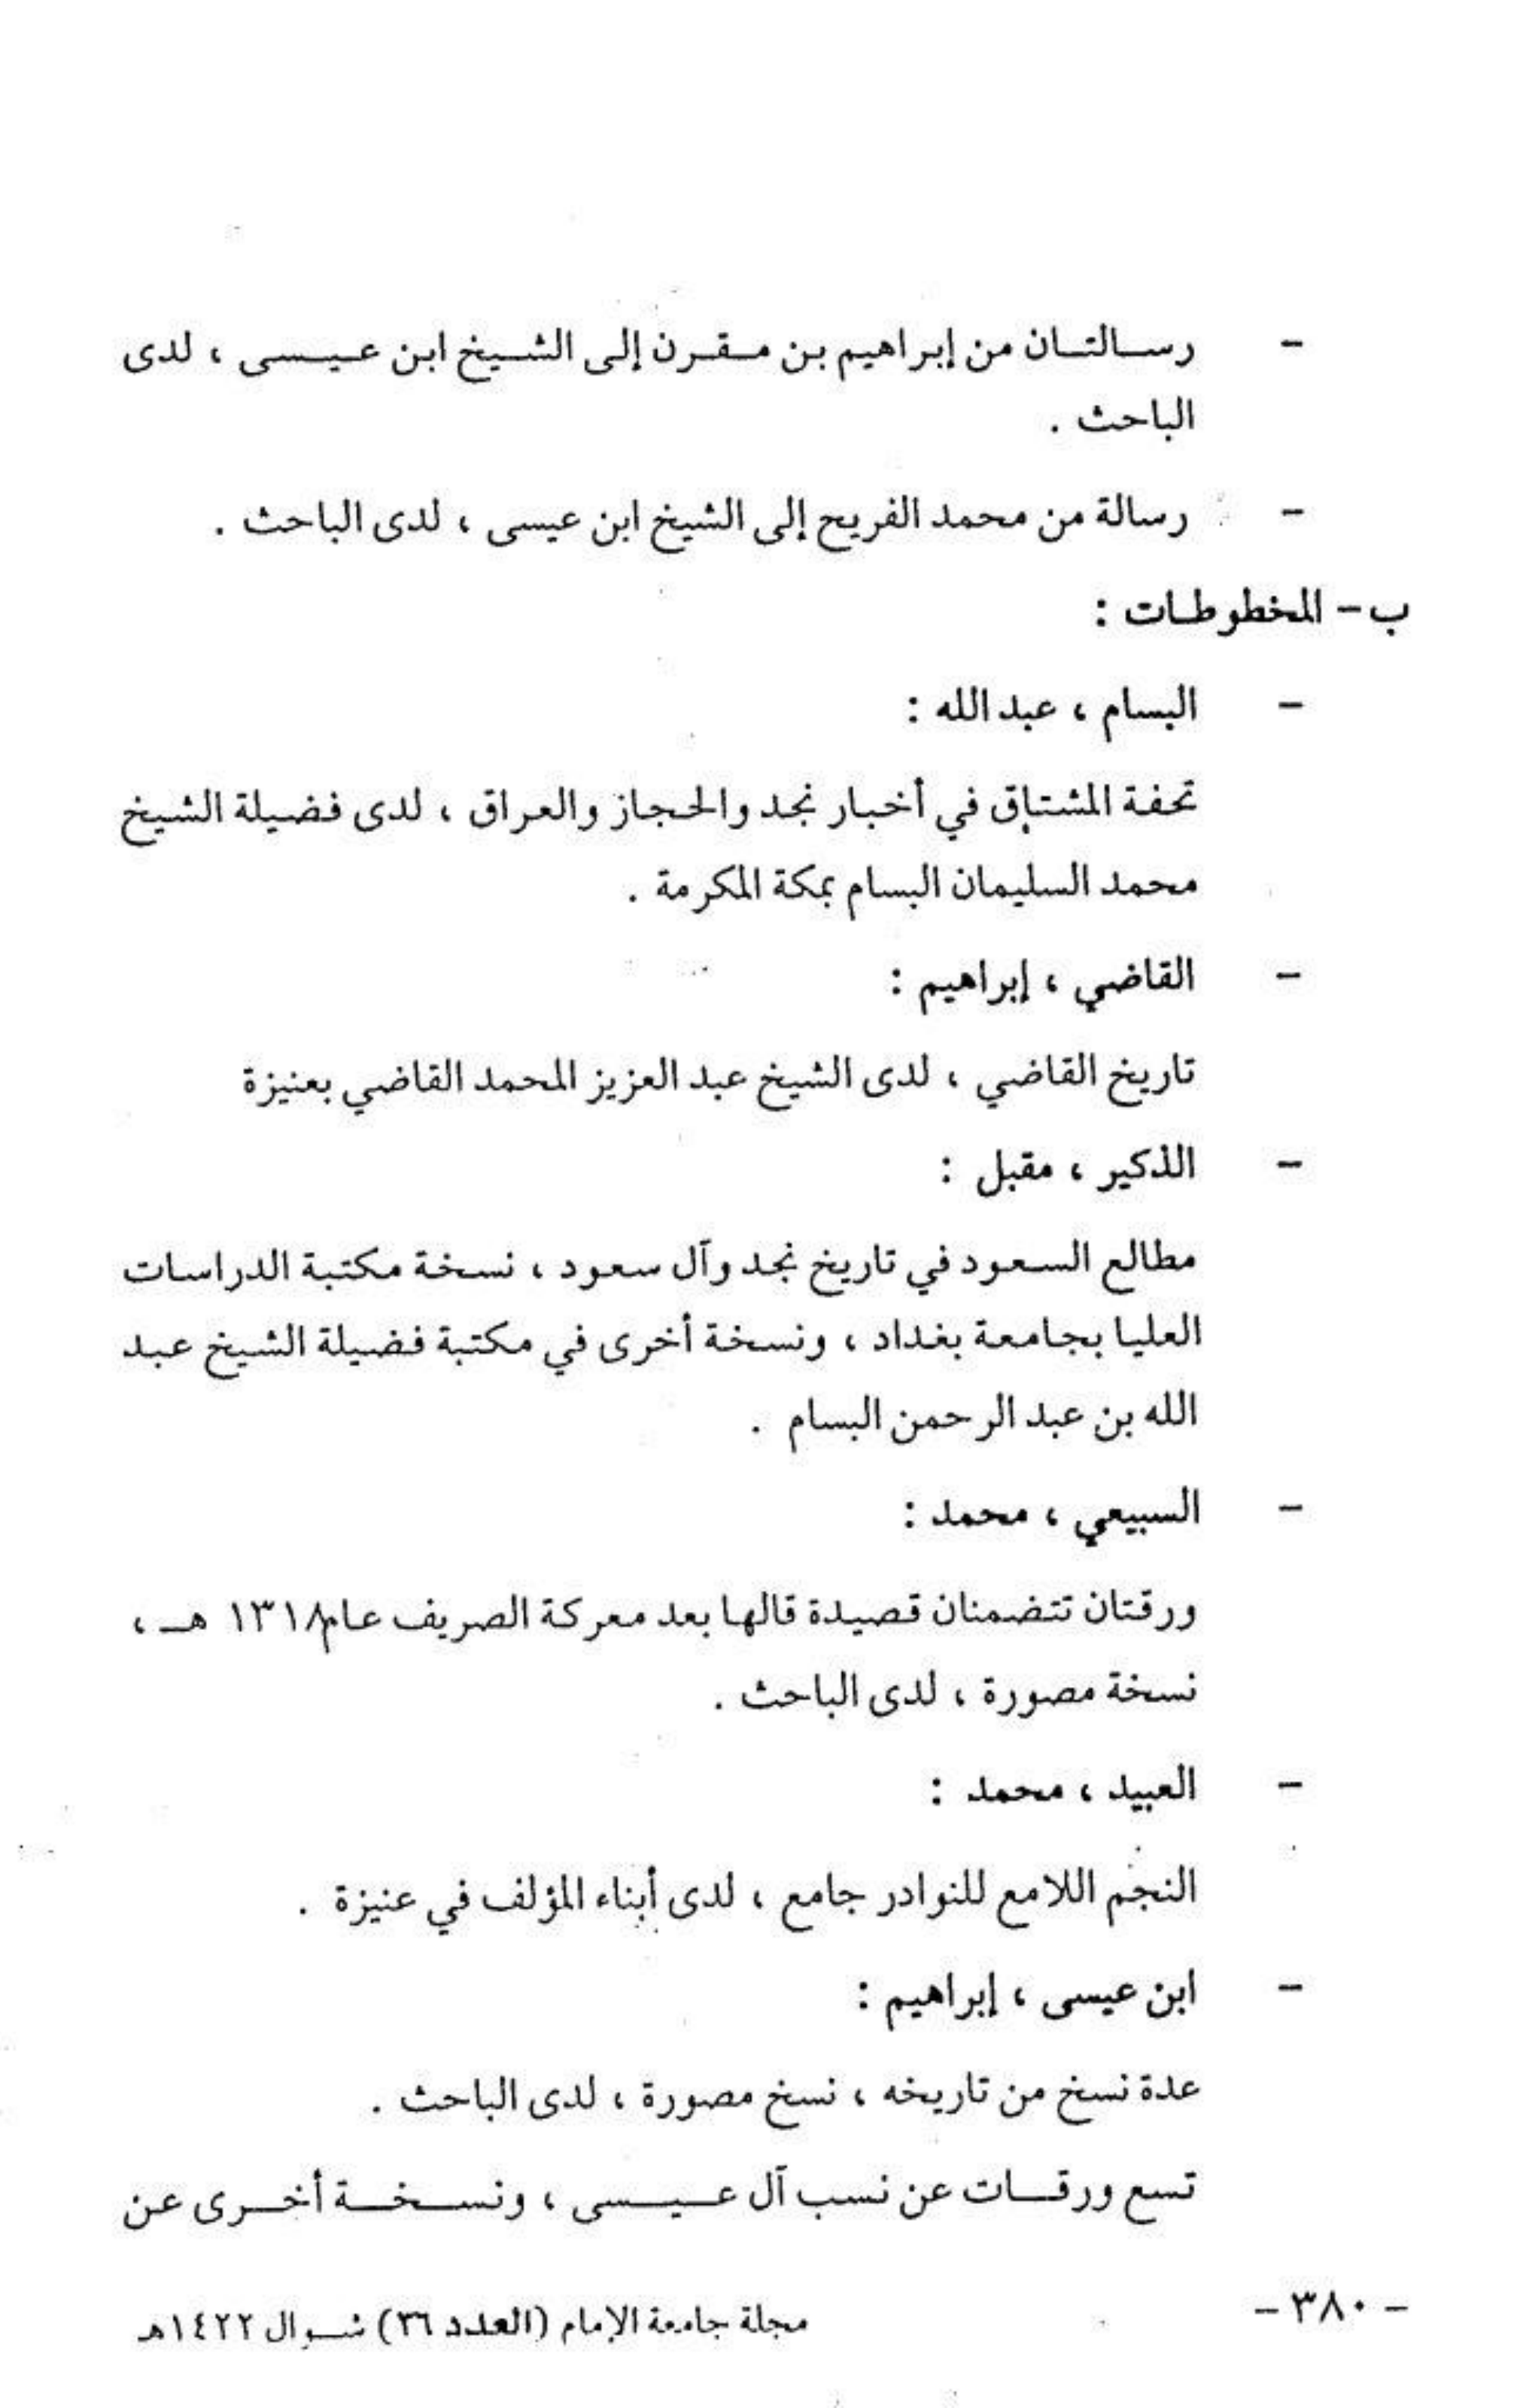 - رسالتان من إبراهيم بن مقرن إلى الشيخ ابن عيسى ، لدى
الباحث .
- رسالة من محمد الفريح إلى الشيخ ابن عيسى ، لدى الباحث .
ب - المخطوطات :
- البسام ، عبد الله :
تحفة المشتاق في أخبار نجد والحجاز والعراق ، لدى فضيلة الشيخ
محمد السليمان البسام بمكة المكرمة .
- القاضي ، إبراهيم :
تاريخ القاضي ، لدى الشيخ عبد العزيز المحمد القاضي بعنيزة
- الذكير ، مقبل :
مطالع السعود في تاريخ نجد وآل سعود ، نسخة مكتبة الدراسات
العليا بجامعة بغداد ، ونسخة أخرى في مكتبة فضيلة الشيخ عبد
الله بن عبد الرحمن البسام .
- السبيعي ، محمد :
ورقتان تتضمنان قصيدة قالها بعد معركة الصريف عام ١٣١٨ هـ ،
نسخة مصورة ، لدى الباحث .
- العبيد ، محمد :
النجم اللامع للنوادر جامع ، لدى أبناء المؤلف في عنيزة .
- ابن عيسى ، إبراهيم :
عدة نسخ من تاريخه ، نسخ مصورة ، لدى الباحث .
تسع ورقات عن نسب آل عيسى ، ونسخة أخرى عن
- ٣٨٠ -
مجلة جامعة الإمام (العدد ٣٦) شوال ١٤٢٢هـ